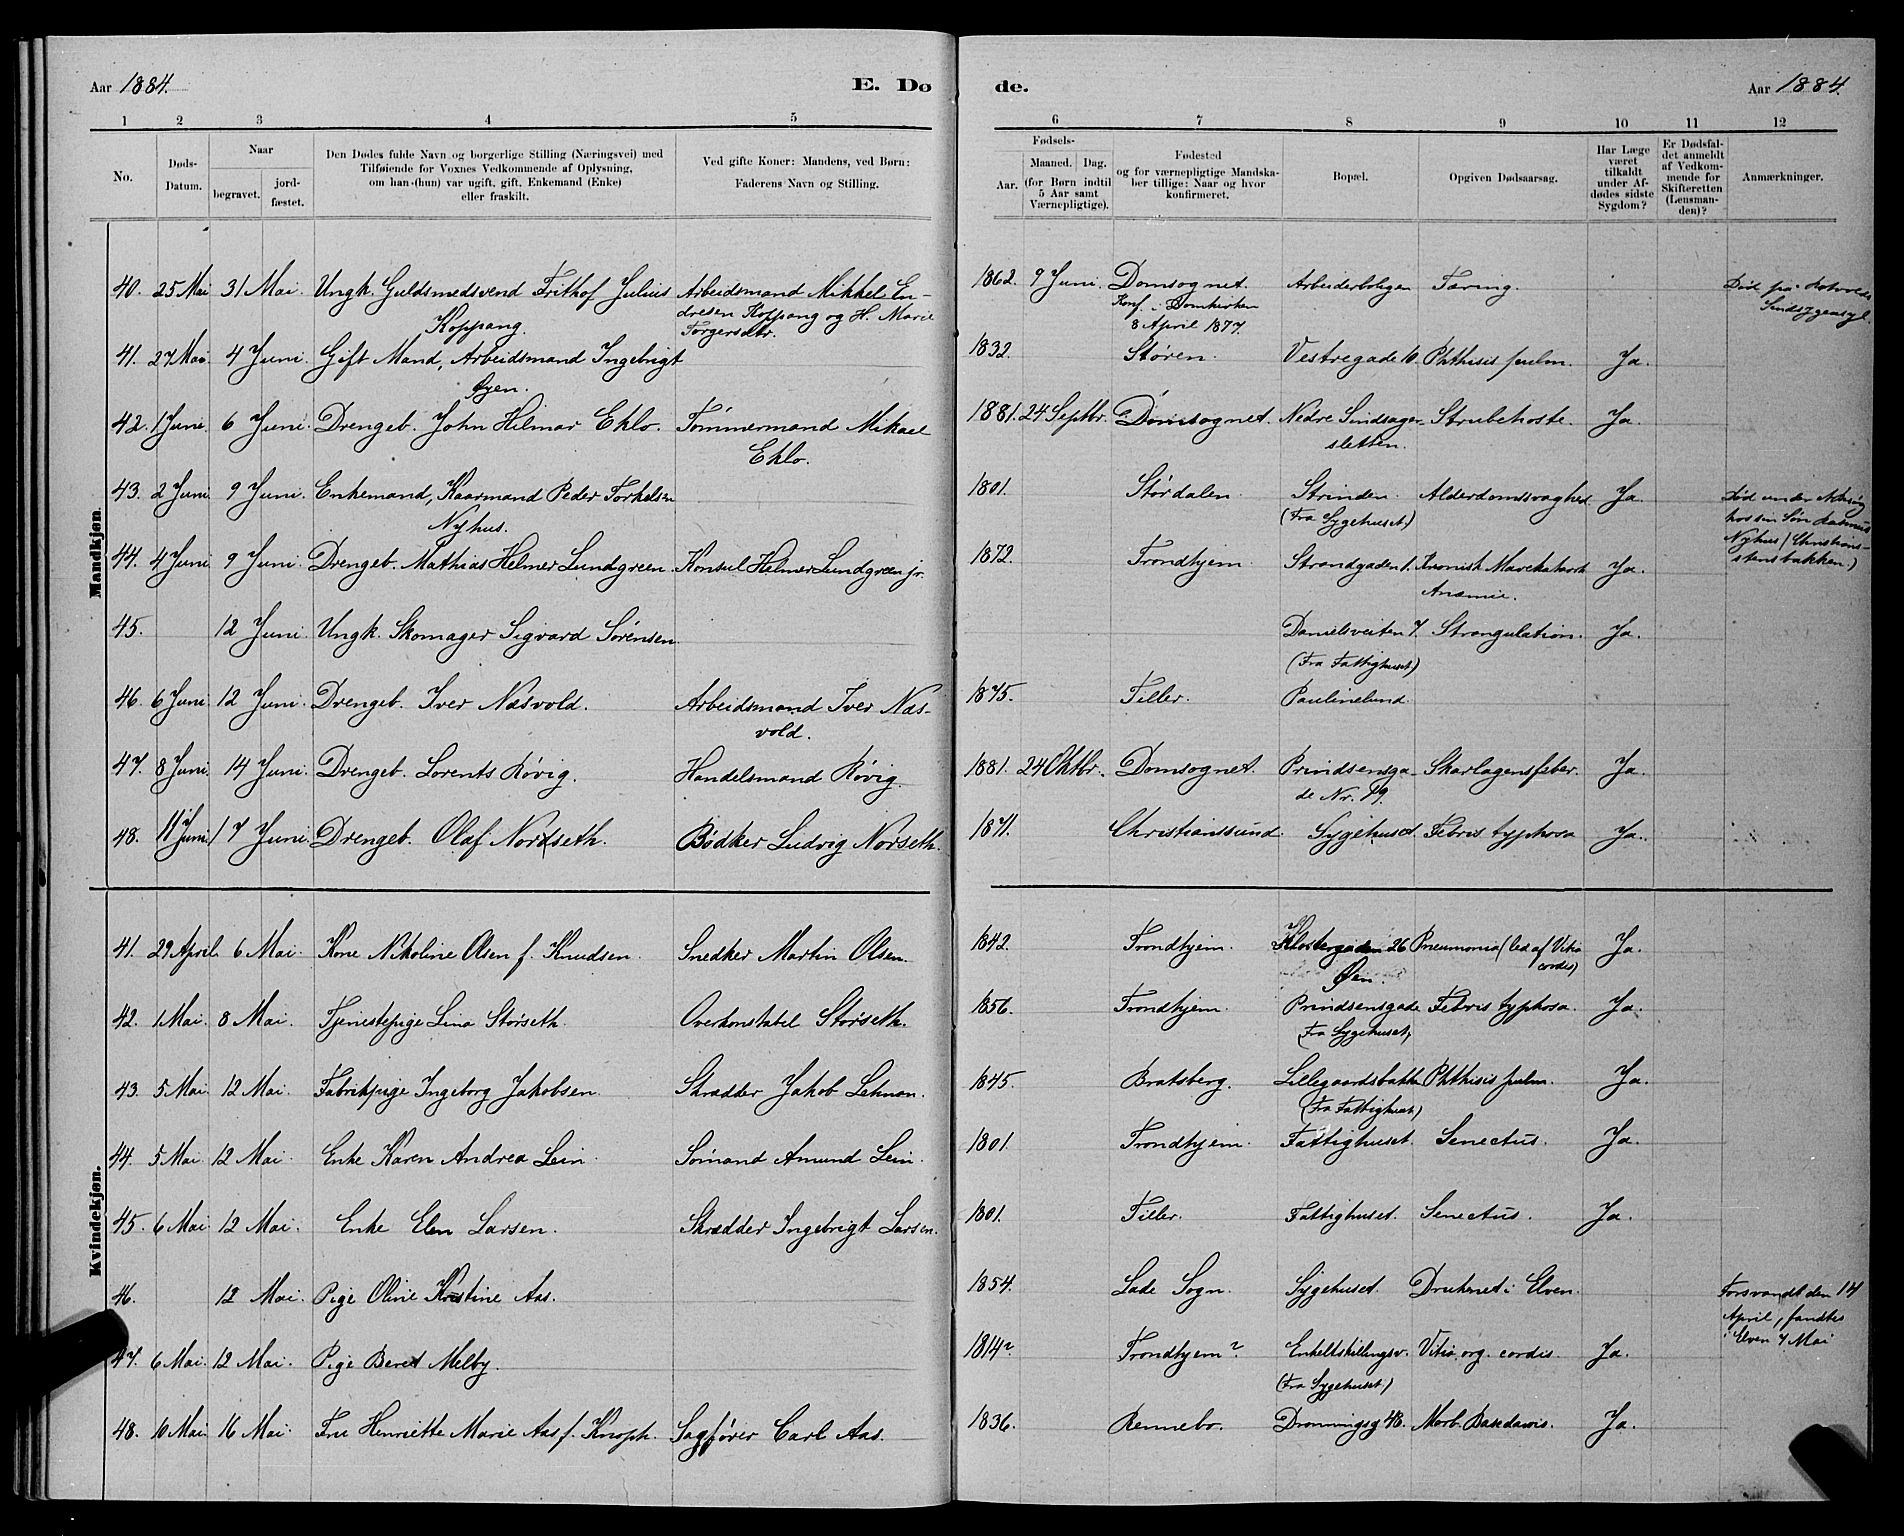 Aar 1884. E. Dø de. Aar 1884.
1 2 3 4 5 6 7 8 9 10 11 12
No.
Døds-
Datum.
Naar
begravet.
jord-
fæstet.
Den Dødes fulde Navn og borgerlige Stilling (Næringsvei) med
Tilføiende for Voxnes Vedkommende af Oplysning,
om han-(hun) var ugift, gift, Enkemand (Enke)
eller fraskilt.
Ved gifte Koner: Mandens, ved Børn:
Faderens Navn og Stilling.
Fødsels-
Aar.
Maaned.
Dag.
(for Børn indtil
5 Aar samt
Værnepligtige).
Fødested
og for værnepligtige Mandska-
ber tillige: Naar og hvor
konfirmeret.
Bopæl.
Opgiven Dødsaarsag.
Har Læge
været
tilkaldt
under Af-
dødes sidste
Sygdom?
Er Dødsfal-
det anmeldt
af Vedkom-
mende for
Skifteretten
(Lensman-
den)?
Anmærkninger.
Mandkjøn.
40. 25 Mai 31 Mai. Ungk. Guldsmedsvend Frithof Julius Arbeidsmand Mikkel En- 1862. 9 Juni. Domsognet. Arbeiderboligen Tæring. Død på Rotvolds
Koppang. dresen Koppang og H. Marie Konf. i Domkirken Sindsygeasyl.
Torgersdtr. 8 April 1877.
41. 27 Mai 4 Juni. Gift Mand, Arbeidsmand Ingebrigt 1832. Støren. Vestregade 16. Phthisis pulm. Ja.
Øyen.
42. 1 Juni. 6 Juni. Drengeb. John Hilmar Ehlo. Tømmermand Mikael 1881. 24 Septbr. Domsognet. Nedre Sindsager- Strubehoste. Ja.
Ehlo. sletten.
43. 2 Juni 9 Juni. Enkemand, Kaarmand Peder Torkelsen 1801. Størdalen. Strinden. Alderdomssvaghed Ja. Død under
Nyhus. (Fra Sygehuset) hos sin Søn Rasmus
Nyhus (Christians-
stensbakken.)
44. 4 Juni 9 Juni. Drengeb. Mathias Helmer Lundgreen. Konsul Helmer Lundgreen jr. 1872. Trondhjem. Strandgaden 1. Kronisk Ja.
Anæmie.
45. 12 Juni Ungk. Skomager Sigvard Sørensen Danielsveiten 7. Strangulation. Ja.
(Fra Fattighuset)
46. 6 Juni 12 Juni. Drengeb. Iver Næsvold. Arbeidsmand Iver Næs- 1875. Tiller. Paulinelund.
vold.
47. 8 Juni. 14 Juni. Drengeb. Lorents Røvig. Handelsmand Røvig. 1881. 24 Oktbr. Domsognet. Prindsensga- Skarlagensfeber. Ja.
de Nr. 19.
48. 11 Juni. 17 Juni. Drengeb. Olaf Nordseth. Bødker Ludvig Norseth. 1871. Christianssund. Sygehuset. Febris typhosa Ja.
Kvindekjøn.
41. 29 April. 6 Mai. Kone Nikoline Olsen f. Knudsen. Snedker Martin Olsen. 1842. Trondhjem. Klostergaden 26 Pneumonia (led af Vitio Ja.
Øen. cordis)
42. 1 Mai. 8 Mai. Tjenestepige Lina Størseth. Overkonstabel Størseth. 1856. Trondhjem. Prindsensgade Febris typhosa. Ja.
(Fra Sygehuset)
43. 5 Mai. 12 Mai. Fabrikpige Ingeborg Jakobsen. Skrædder Jakob Lehman. 1845. Bratsberg. Lillegaardsbakke Phthisis pulm. Ja.
(Fra Fattighuset)
44. 5 Mai. 12 Mai. Enke Karen Andrea Lein. Sømand Amund Lein. 1801. Trondhjem. Fattighuset. Senectus. Ja.
45. 6 Mai 12 Mai. Enke Elen Larsen. Skrædder Ingebrigt Larsen. 1801. Tiller. Fattighuset. Senectus. Ja.
46. 12 Mai. Pige Oline Kristine Aas. 1854. Lade Sogn. Sygehuset. Druknet i Elven. Forsvandt den 14
April, fandtes
i Elven 7 Mai
47. 6 Mai. 12 Mai. Pige Beret Melby. 1814? Trondhjem? Enkeltskillingsv. Vitio org. cordis Ja.
(Fra Sygehuset)
48. 10 Mai. 16 Mai. Fru Henriette Marie Aas f. Knoph. Sagfører Carl Aas. 1836. Rennebo. Dronningsg 48. Morb. Basedowii. Ja.